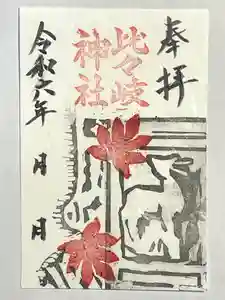 奉拝
比々岐
神社
令和六年　月　日